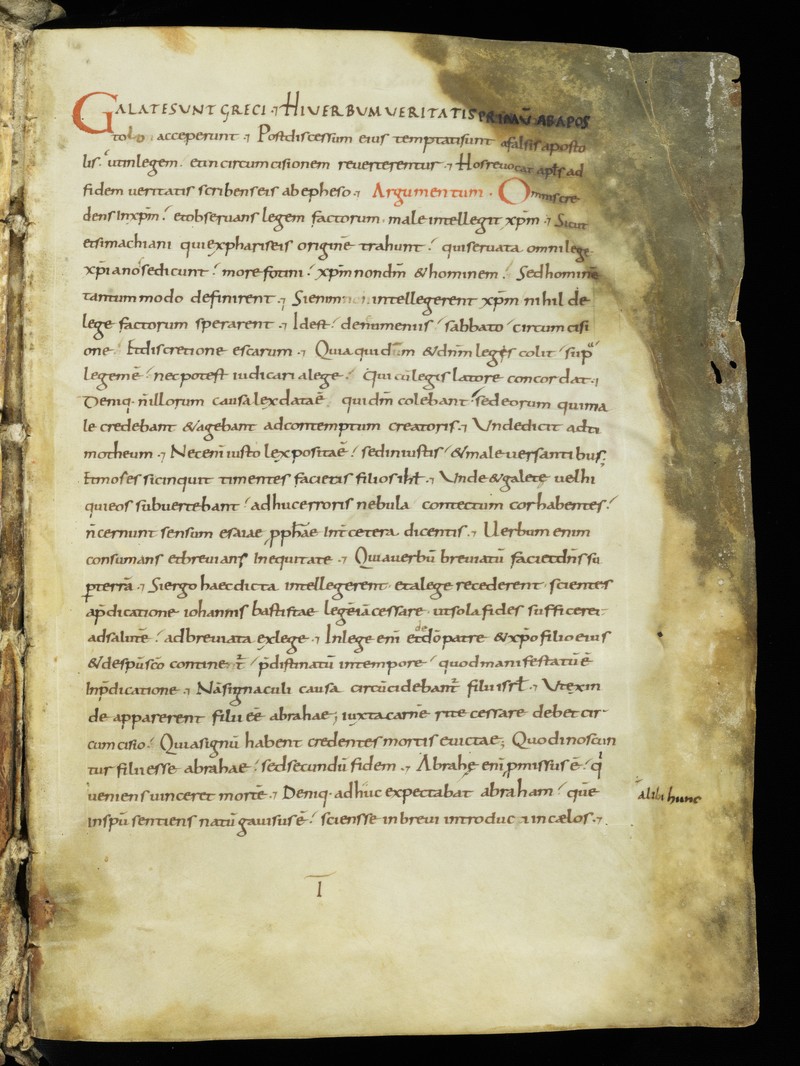 GALATESUNT GRECI · HIVERBUMVERITATIS PRIMŪ ABAPOS
tolo · acceperunt · Postdiscessum eius temptatisunt afalsisaposto
lis · utinlegem · etincircumcisionem reverterentur · Hosrevocat apłs ad
fidem veritatis scribenseis abepheso · Argumentum · Omniscre
densInxpm̄ · etobservans legem factorum · male intellegit xpm̄ · Sicut
etsimachiani quiexphariseis originē trahunt · quiservata omnilege
xpianosedicunt · morefotini · xpm̄nondm̄ &hominem · Sedhominē
tantummodo definirent · Sienim intellegerent xpm̄ nihil de
lege factorum sperarent · Idest · denumeniis · sabbato · circumcisi
one · Etdiscretione escarum · Quiaquidm̄ &dnm̄legis colit · sup
legemē · necpotest iudicari alege · Quicūlegislatore concordat ·
Deniq· n̄illorum causalexdataē quidm̄ colebant · sedeorum quima
le credebant &agebant adcontemptum creatoris · Undedicit adti
motheum · Necenīiusto lexpositaē · sediniustis · &maleversantibus;
Etmosessicinquit timentes facietis filiosihł · Unde&galete velhi
quieossubvertebant · adhucerroris nebula contectum corhabentes ·
n̄cernunt sensum esaiae pphae Int̄cetera dicentis · Uerbum enim
consumans etbrevians Inequitate · Quiaverbū breviatū facietdn̄ssu
pterrā · Siergo haecdicta intellegerent · etalege recederent · scientes
apdicatione iohannis baptistae legēiācessare · utsolafides sufficeret
adsalutē · adbreviata exlege · Inlege enī etdōpatre &xpofilioeius
de
&despūsc̄o contine t̄ · pdistinatū intempore · quodmanifestatūē
Inpdicatione · Nāsignaculi causa circūcidebant̄ filiiisrł · Utexin
de apparerent filii eē abrahae; iuxtacarnē rite cessare debetcir-
cumcisio · Quiasignū habent credentesmortisevictae; Quodinoscun
tur filiiesse abrahae · sedsecundū fidem · Abrahę enī pmissusē · q
veniensvinceret mortē · Deniq· adhuc expectabat abraham · quē
inspū sentiens natū gavisusē · sciensse inbrevi introduc i incælos ·
alibi hunc
I